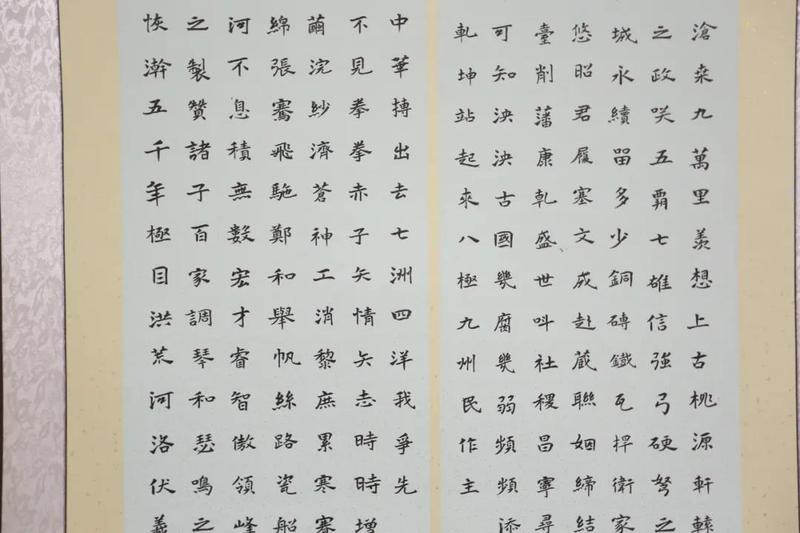 滄桒九萬里羨想上古桃源軒轅
之政咲五覇七雄信強弓硬弩之
城永續畱多少銅磚鐵瓦捍衛家
悠昭君履塞文成赴蔵聯姻締結
臺削藩康乹盛世呌社稷昌寧尋
可知泱泱古國幾腐幾弱頻頻添
乹坤站起來八極九州民作主
中華搏出去七洲四洋我爭先
不見拳拳赤子矢情矢志時時增
繭浣紗濟蒼神工消黎庶累寒
綿張騫飛馳鄭和舉帆絲路瓷船
河不息積無數宏才睿智傲領峰
之製贊諸子百家調琴和瑟鳴之
恢瀚五千年極目洪荒河洛伏羲